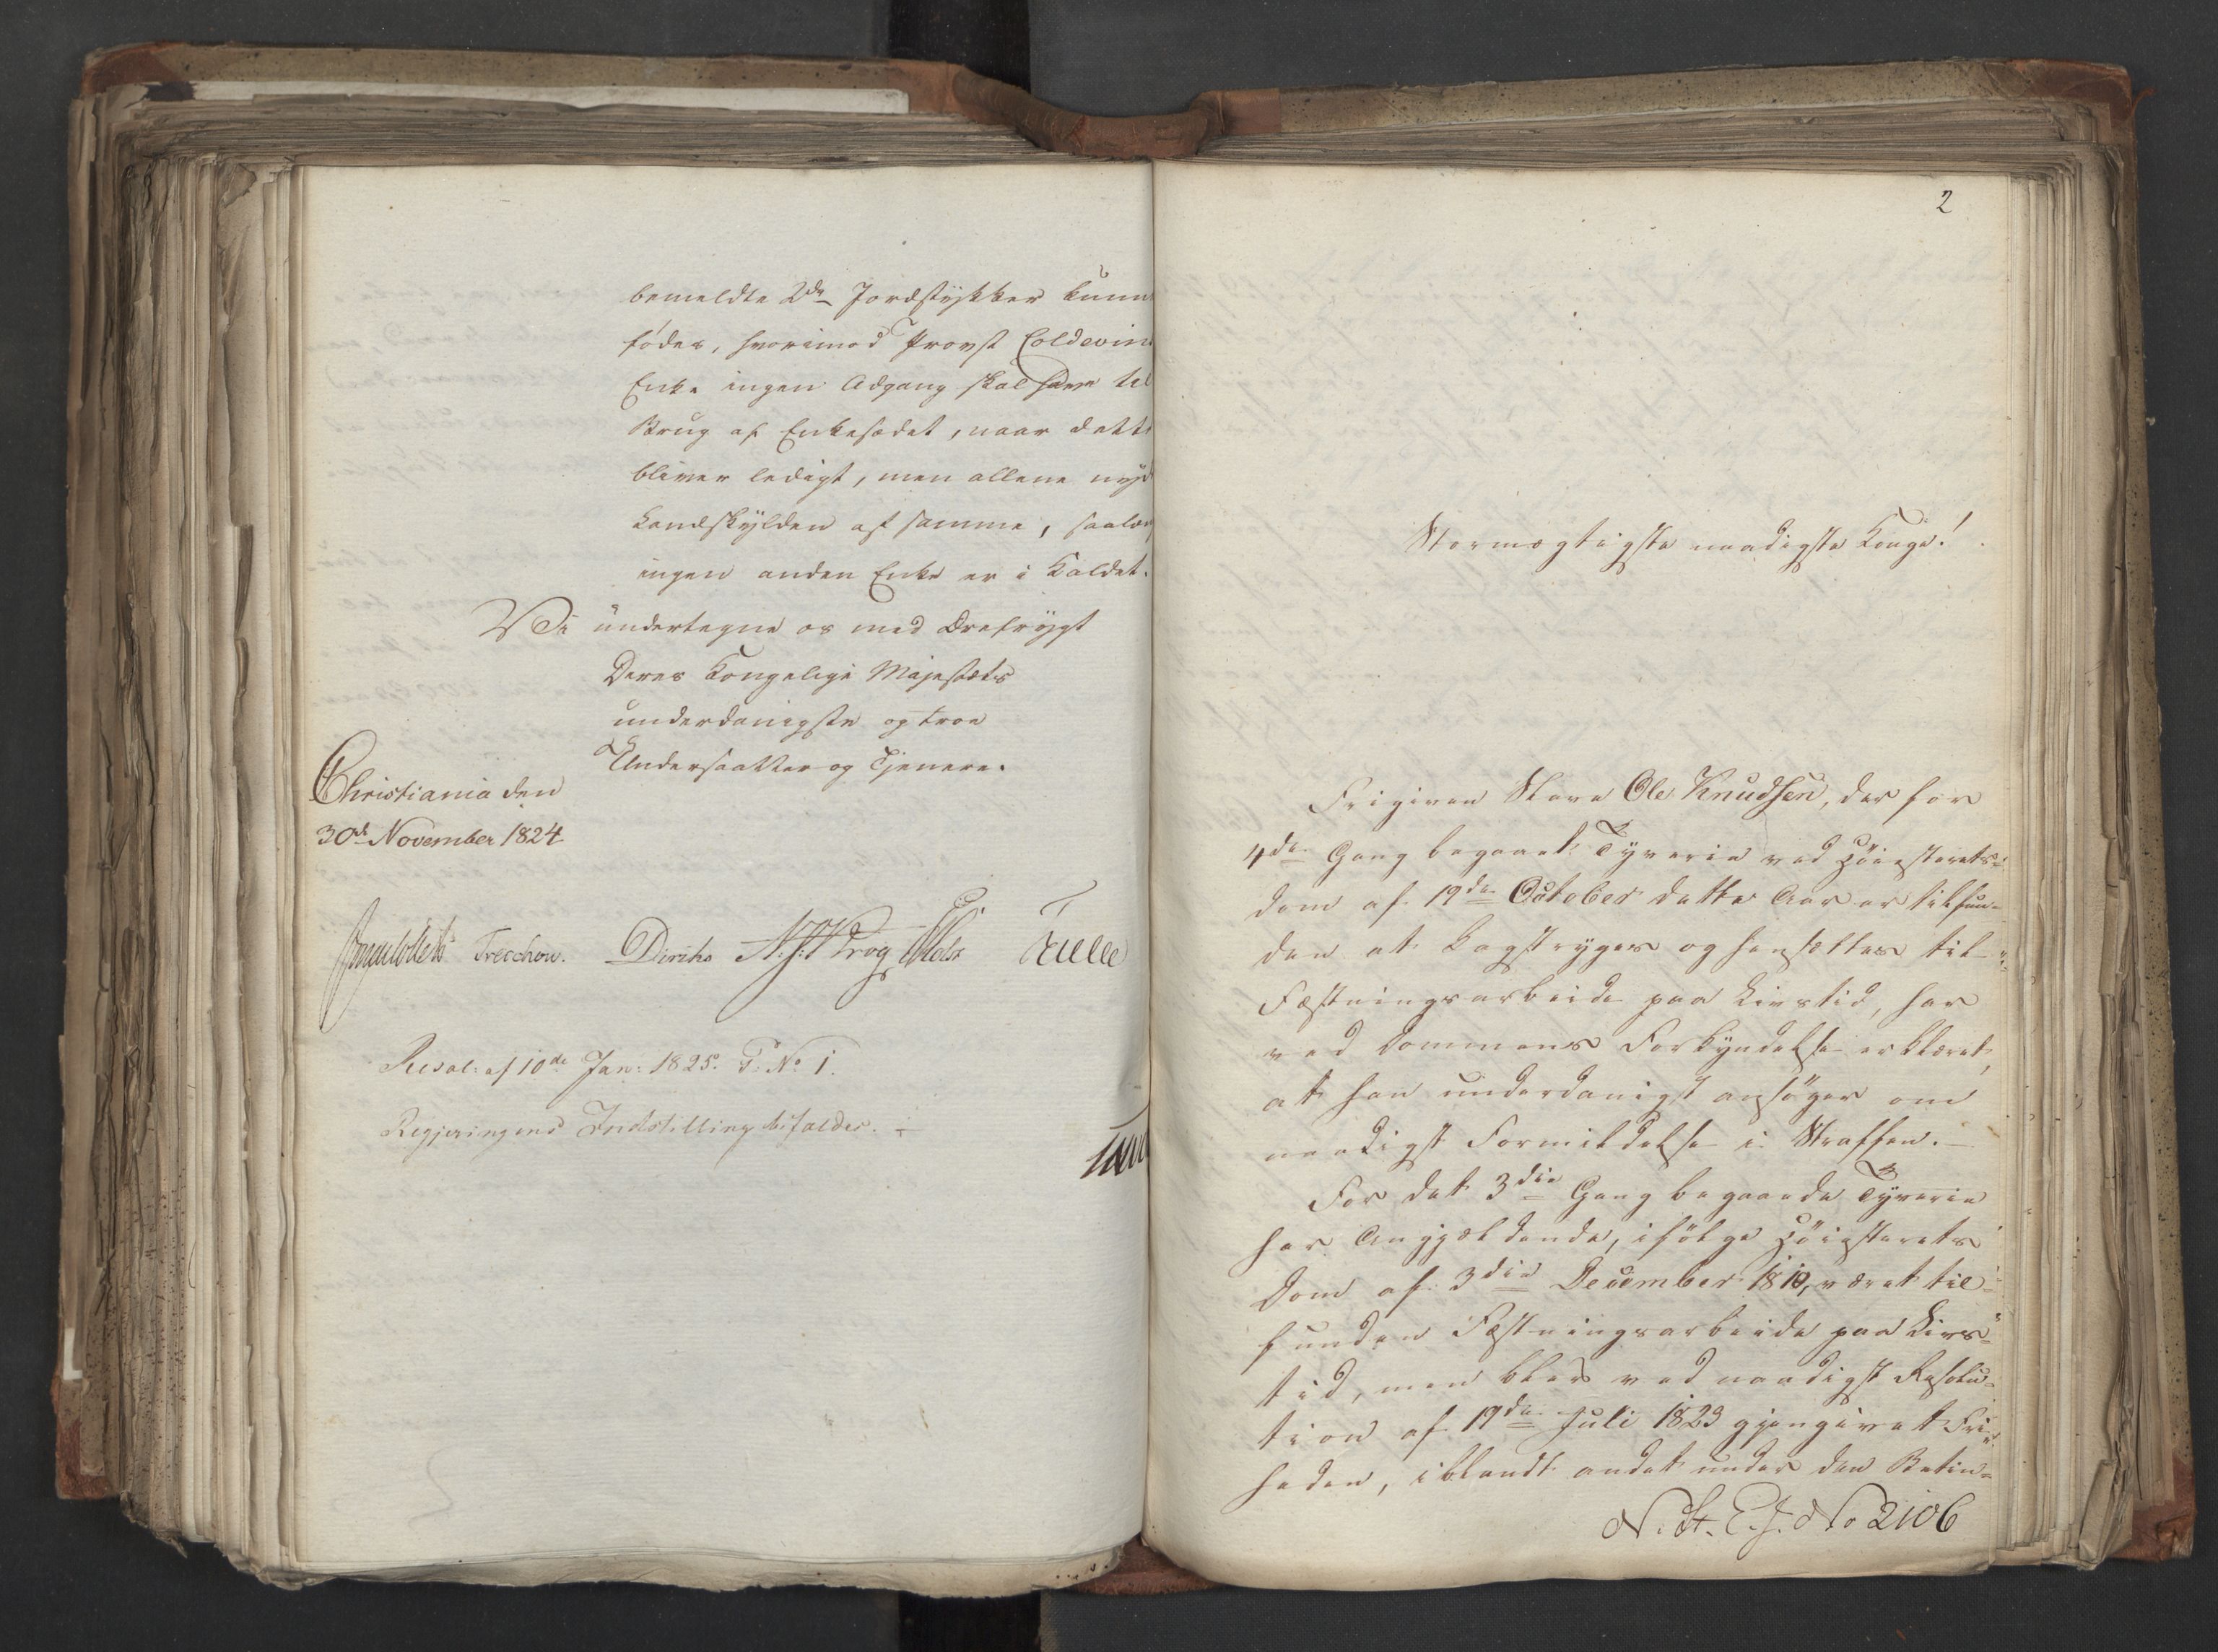 bemeldte 2de Jordstykker kunn
fødes, hvorimod Provst Coldevin
Enke ingen Adgang skal have til
Brug af Enkesædet, naar dette
bliver ledigt, men allene nyd
Landskylden af samme, saalæn
ingen anden Enke er i Kaldet.
Vi undertegne os med Ærefrygt
Deres Kongelige Majestæts
underdanigste og troe
Undersaatter og Tjenere.
Christiania den
30de November 1824
Treschow. Diriks N. J. Krog Holst
Resol: af 10de Jan: 1825. No 1.
Regjeringens Indstilling bifaldes.
2
Stormægtigste naadigste Konge!
Frigiven Slave Ole Knudsen, der for
4de Gang begaaet Tyverie ved Høiesterets-
dom af 19de October dette Aar er tilfun-
den at kagstryges og hensættes til
Fæstningsarbeide paa Livstid, har
ved Dommens Forkyndelse erklæret,
at han underdanigst ansøger om
naadigst Formildelse i Straffen.
For det 3die Gang begaaede Tyverie
har Angjældende, ifølge Høiesterets
Dom af 3die December 1810, været til-
funden Fæstningsarbeide paa Livs-
tid, men blev ved naadigst Resolu-
tion af 19de Juli 1823 gjengivet Fri-
heden, iblandt andet under den Betin-
N. St. E. J. No 2106